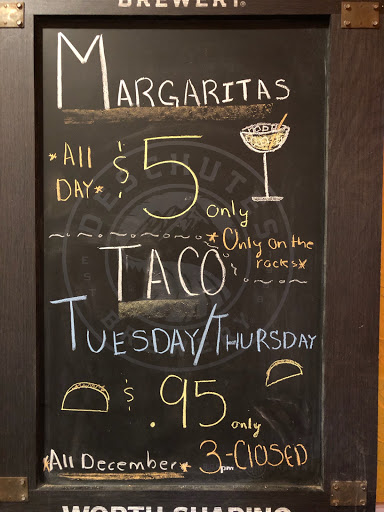 BREWERY®
MARGARITAS
*All DAY* $5 only
*Only on the rocks*
TACO
TUESDAY/THURSDAY
$ .95 only
*All December* 3pm-ClOSED
WORTH SHARING
DESCHUTES